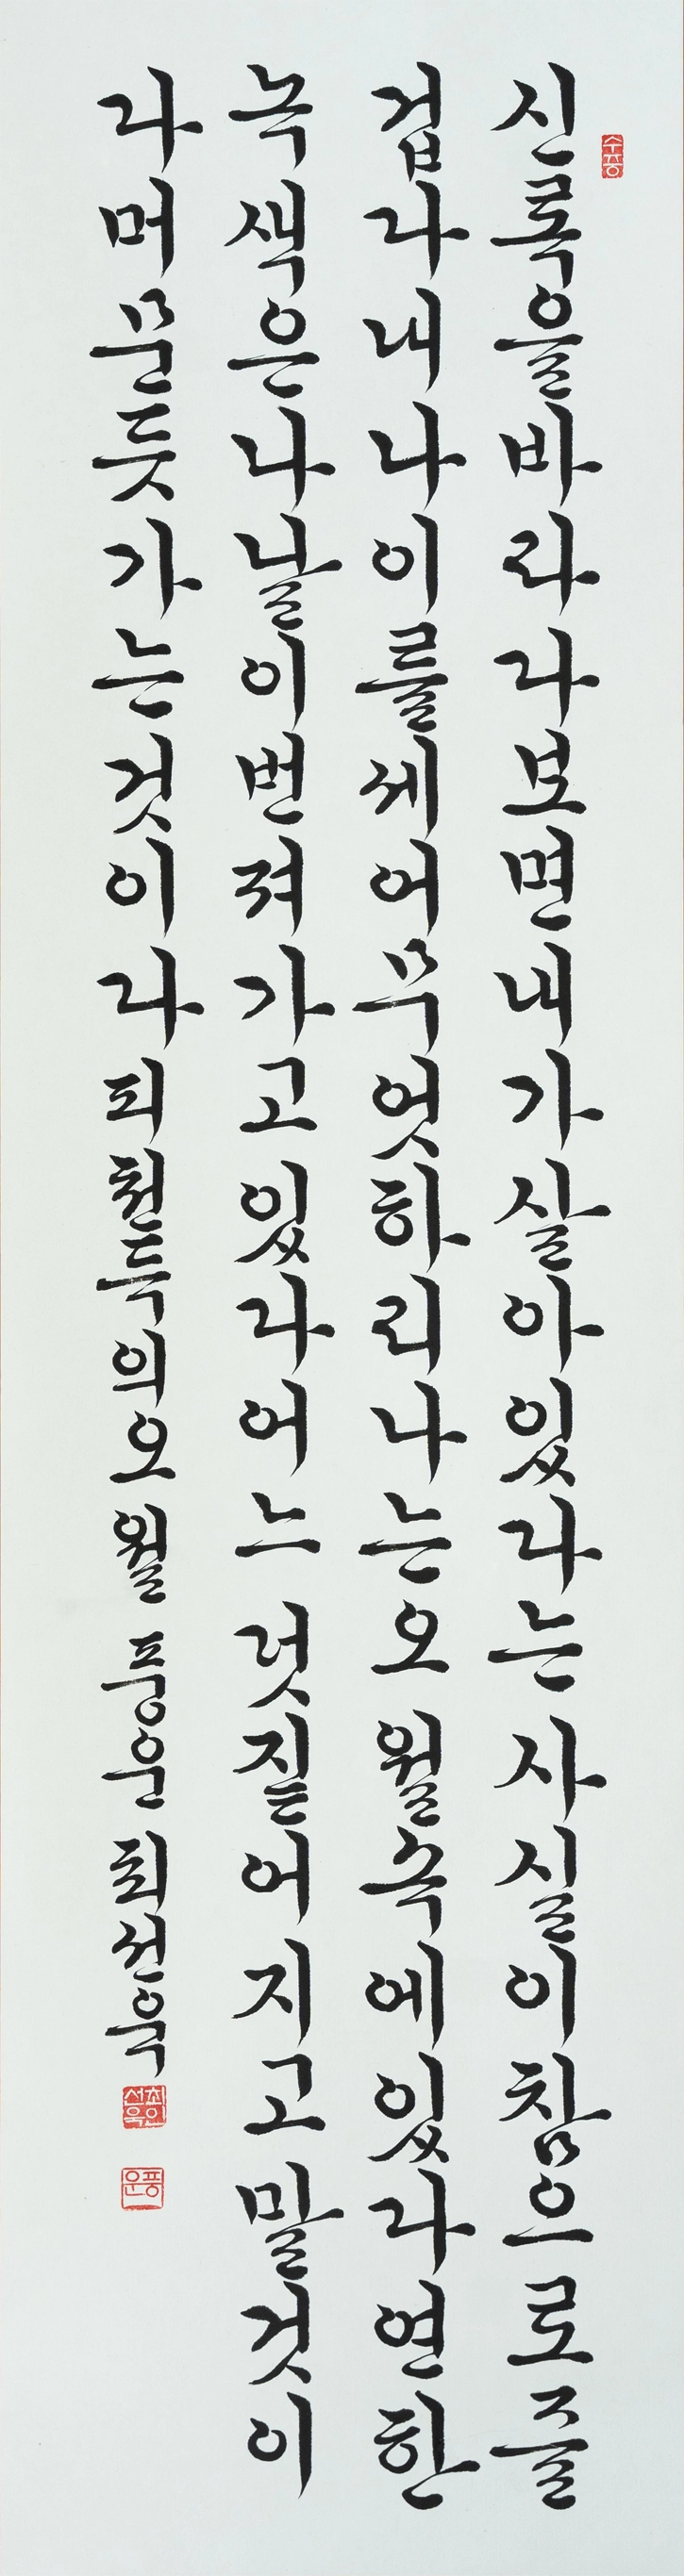 수풍
신록을바라다보면내가살아있다는사실이참으로즐
겁다내나이를세어무엇하리나는오월속에있다연한
녹색은나날이번져가고있다어느덧짙어지고말것이
다머문듯가는것이다 피천득의오월 풍운 최선욱
풍운